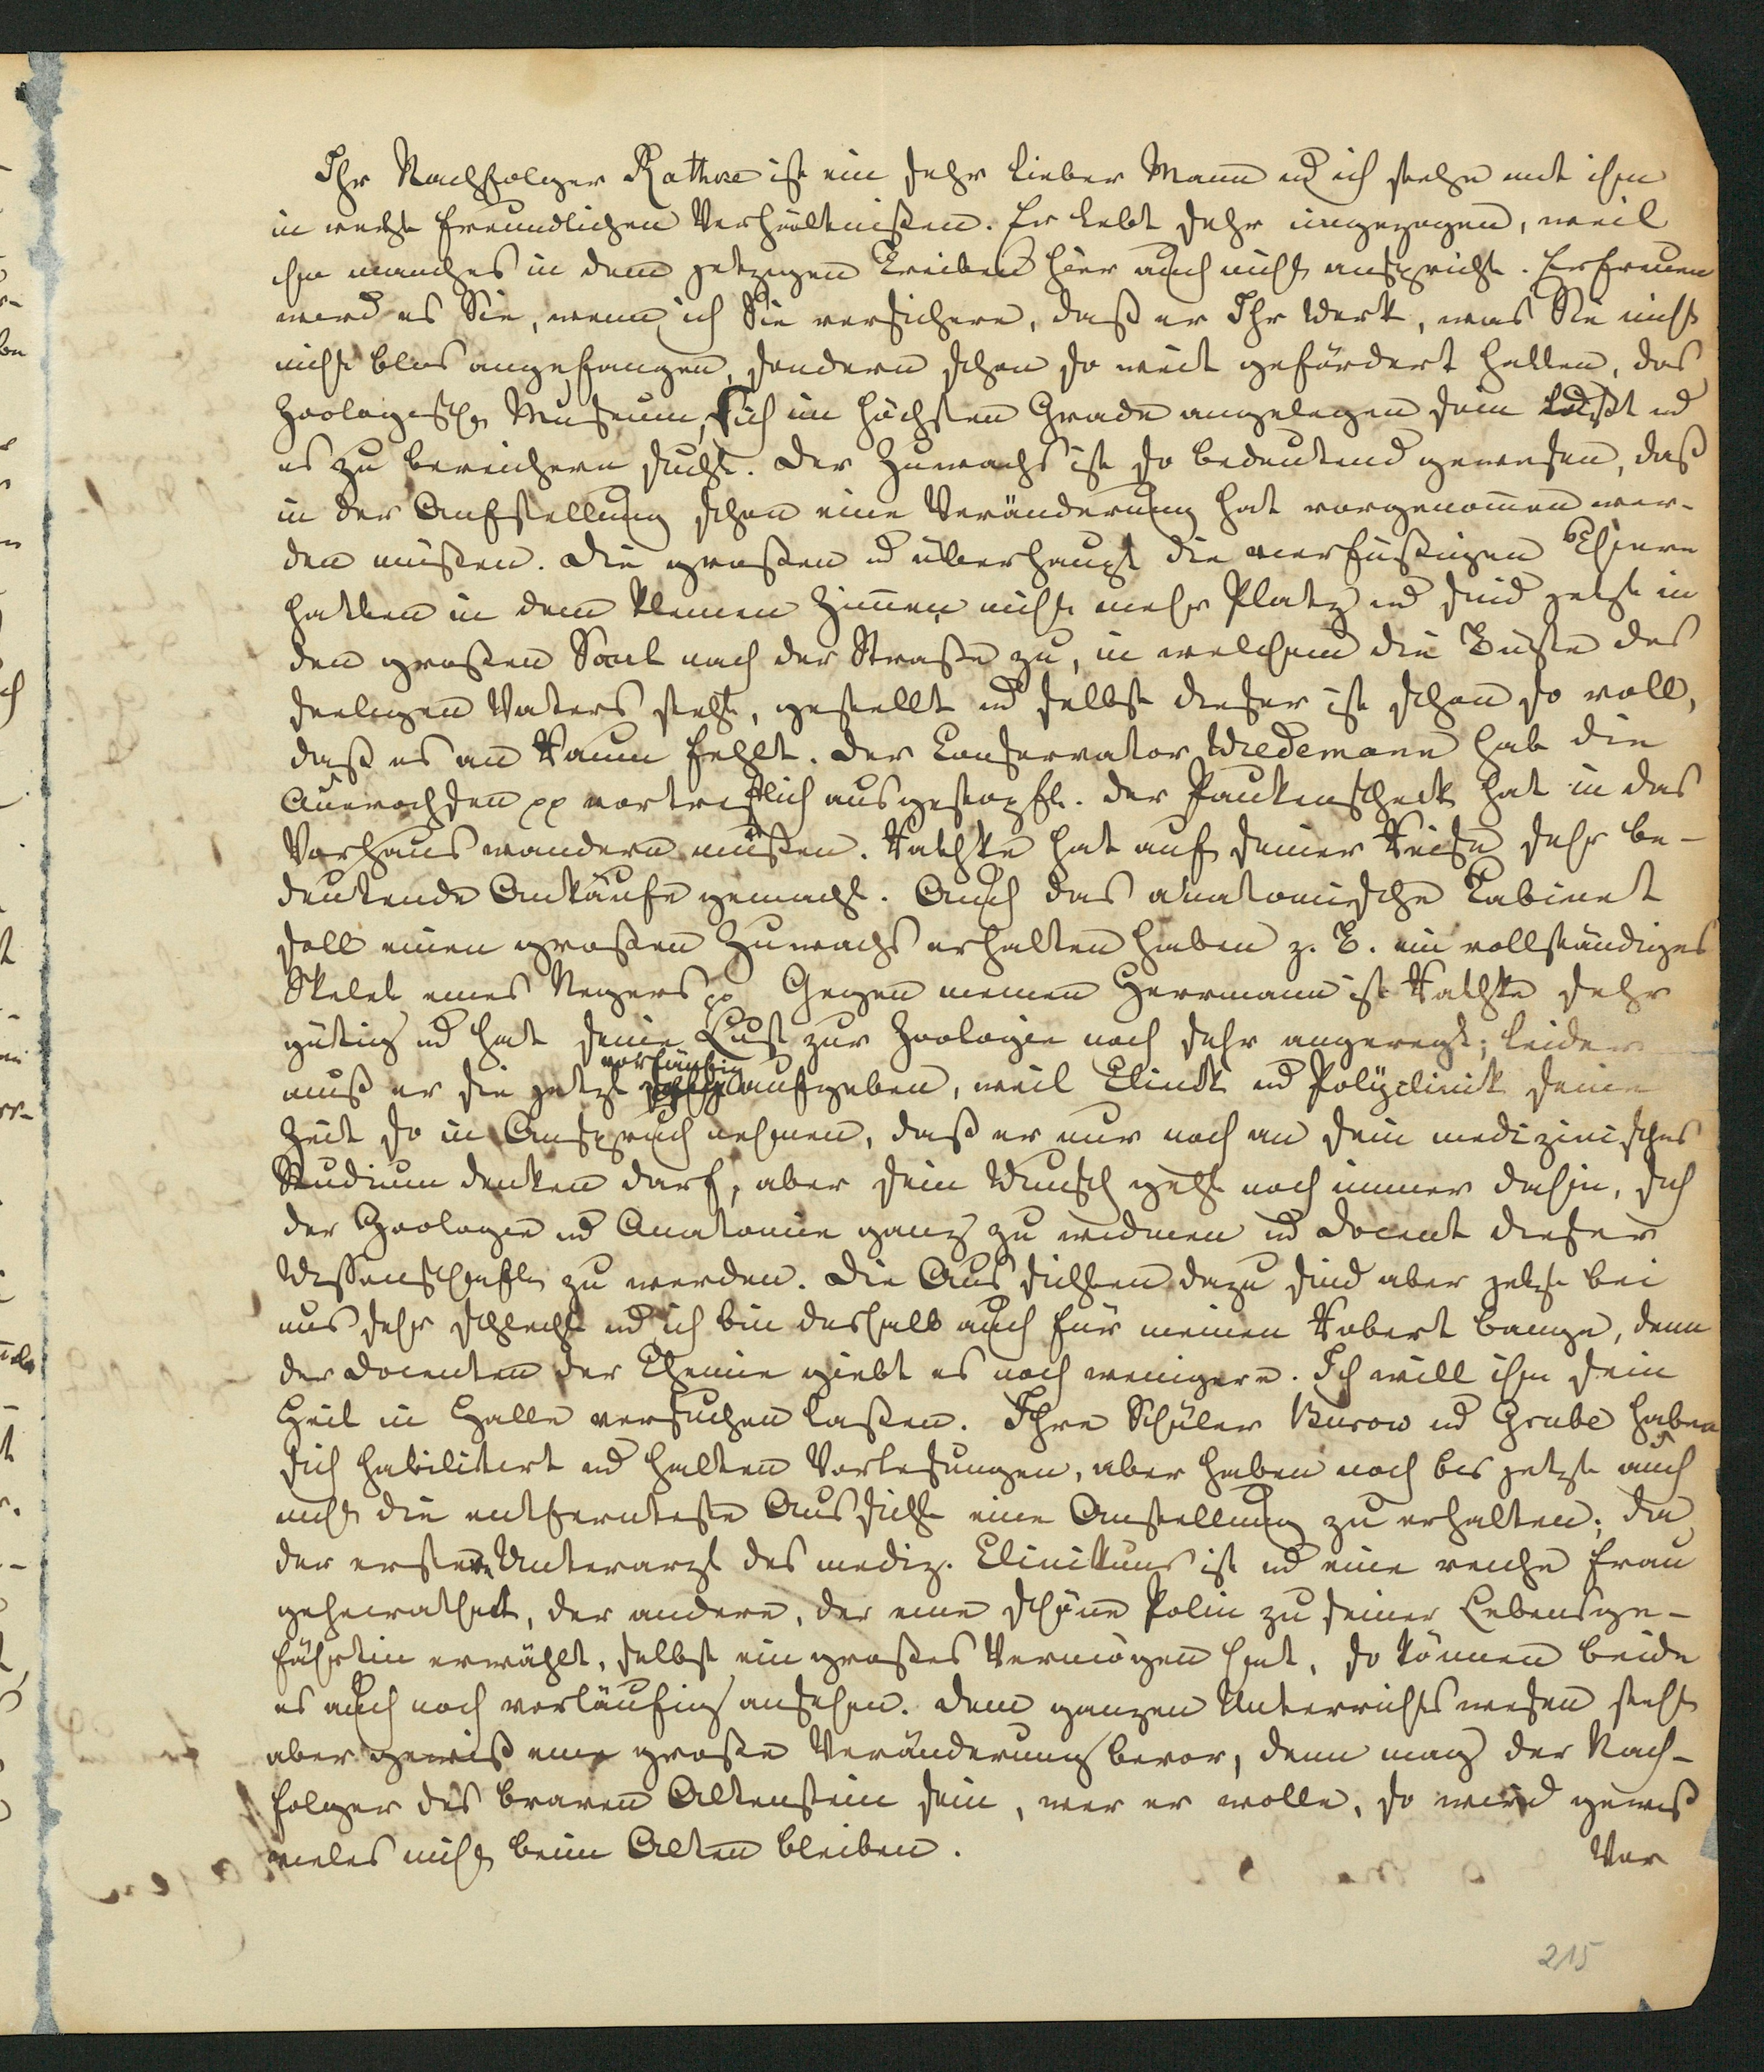 Ihr Nachfolger Rathke ist ein sehr lieber Mann und ich stehe mit ihm
in recht freundlichen Verhältnißen. Er lebt sehr eingezogen, weil
ihm manches in dem jetzigen Treiben hier auch nicht anspricht. Erfreuen
wird es Sie, wenn ich Sie versichere, daß er Ihr Werk, was Sie nicht
nicht blos angefangen, sondern schon so weit gefördert hatten, das
zoologische Museum, sich im höchsten Grade angelegen sein läßt und
es zu bereichern sucht. Der Zuwachs ist so bedeutend gewesen, daß
in der Aufstellung schon eine Veränderung hat vorgenommen wer-
den müßen. Die großen und überhaupt die vierfüßigen Thiere
hatten in dem kleinen Zimmer nicht mehr Platz und sind jetzt in
den großen Saal nach der Straße zu, in welchem die Büste des
seeligen Vaters steht, gestellt und selbst dieser ist schon so voll,
daß es an Raum fehlt. Der Conservator Wiedemann hat die
Auerochsen pp vortreflich ausgestopft. Der Paukenscheck hat in das
Vorhaus wandern müßen. Rathke hat auf seiner Reise sehr be-
deutende Ankäufe gemacht. Auch das anatomische Cabinet
soll einen großen Zuwachs erhalten haben z. B. ein vollständiges
Skelet eines Negers pp Gegen meinen Herrmann ist Rathke sehr
gütig und hat seine Lust zur Zoologie noch sehr angeregt; leider
muß er sie jetzt vorläufig aufgeben, weil Clinik und Polyclinik seine
Zeit so in Anspruch nehmen, daß er nur noch an sein medizinisches
Studium denken darf, aber sein Wunsch geht noch immer dahin, sich
der Zoologie und Anatomie ganz zu widmen und Docent dieser
Wissenschaften zu werden. Die Aussichten dazu sind aber jetzt bei
uns sehr schlecht und ich bin deshalb auch für meinen Robert bange, denn
der Docenten der Chemie giebt es noch wenigere. Ich will ihn sein
Heil in Halle versuchen laßen. Ihre Schüler Burow und Grube haben
sich habilitirt und halten Vorlesungen, aber haben noch bis jetzt auch
nicht die entfernteste Aussicht eine Anstellung zu erhalten; da
der erstere Unterarzt des mediz. Clinikums ist und eine reiche Frau
geheirathet, der andere, der eine schöne Polin zu seiner Lebensge-
fährtin erwählt, selbst ein großes Vermögen hat, so können beide
es auch noch vorläufig ansehen. Dem ganzen Unterrichtswesen steht
aber gewiß eine große Veränderung bevor, denn mag der Nach-
folger des braven Altenstein sein, wer er wolle, so wird gewiß
vieles nicht beim Alten bleiben.
Vor
215